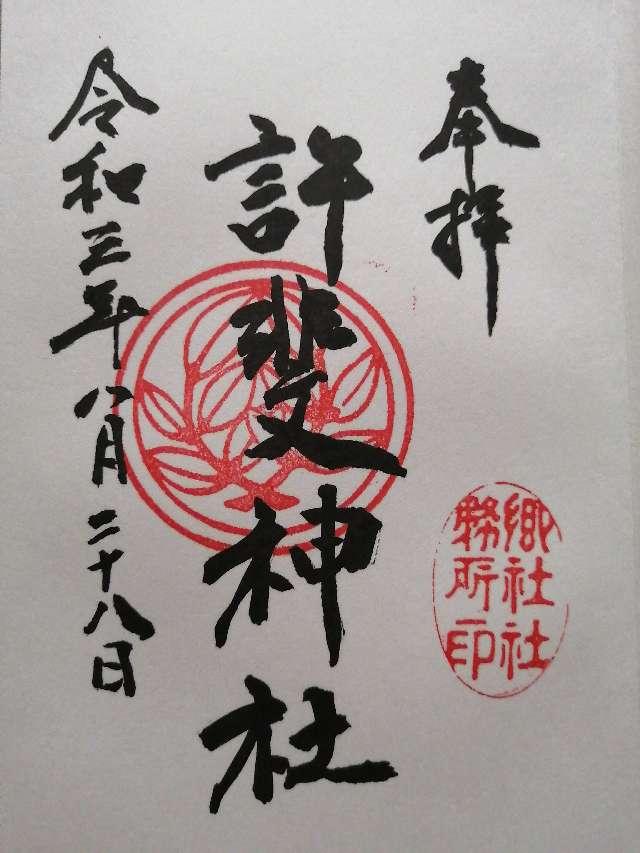 奉拝
許斐神社
令和三年八月二十八日
郷社社
務所印